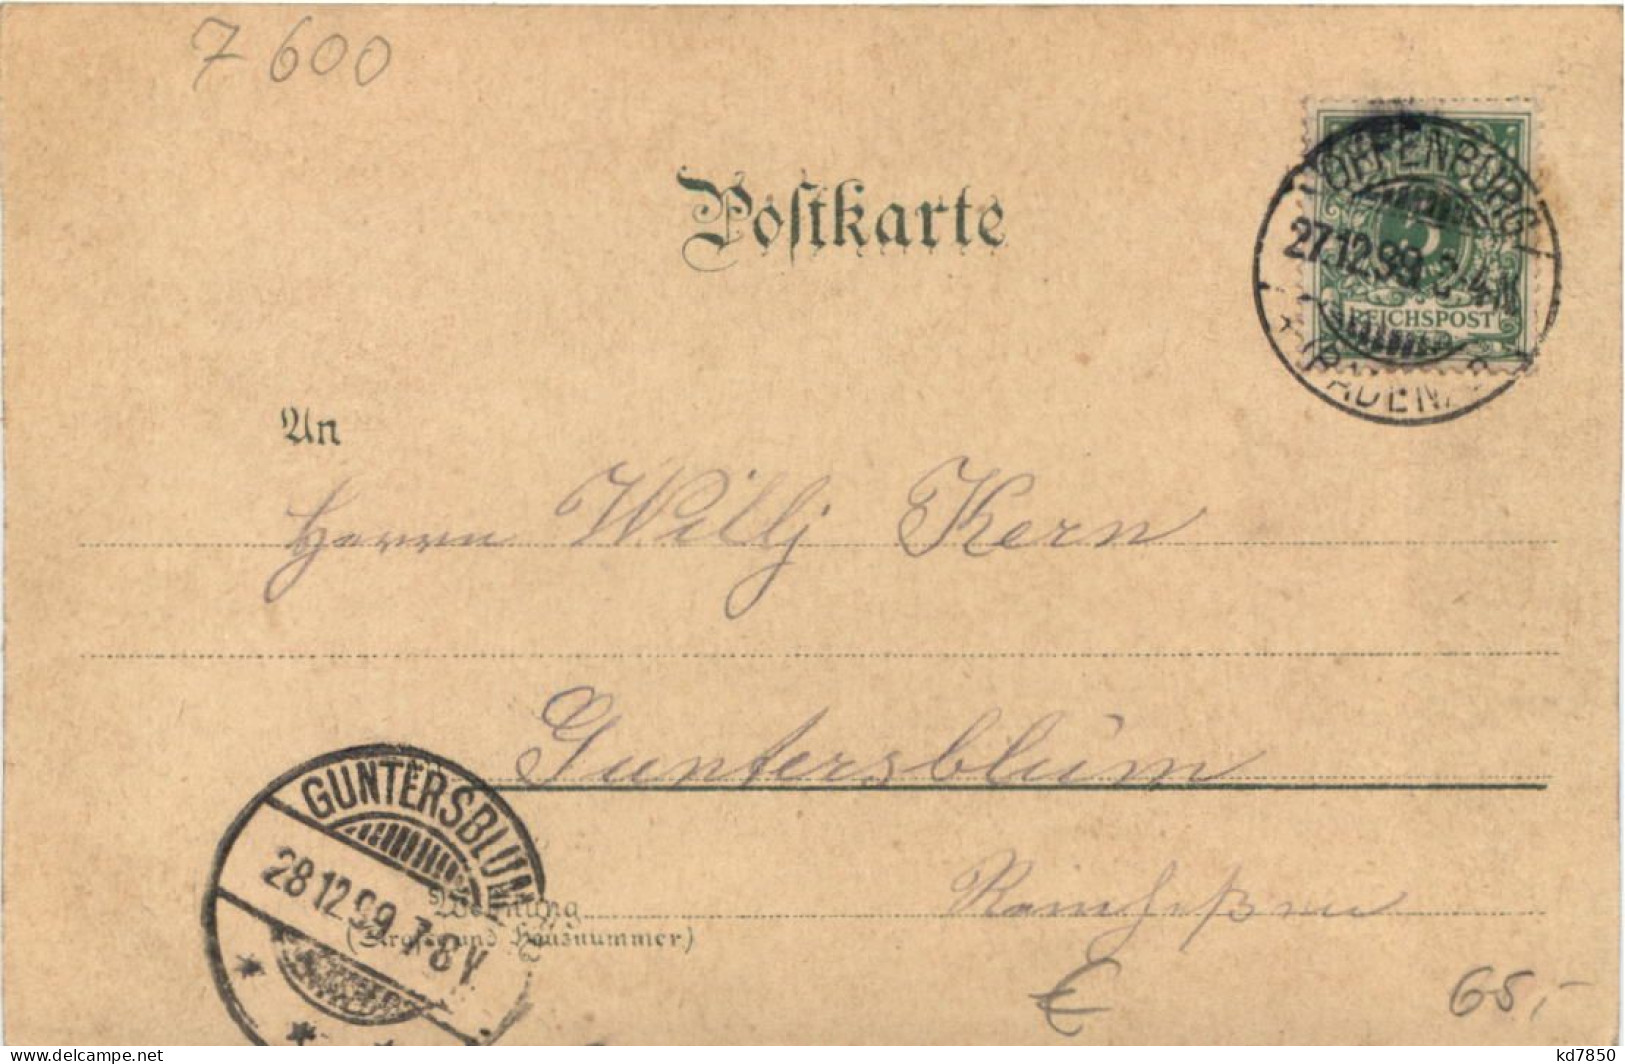 7600
OFFENBURG
27.12.99. 3-4 N
(BADEN)
5
REICHSPOST
Postkarte
An
Herrn Willj Kern
Guntersblum
GUNTERSBLUM
28.12.99. 7-8 V
Wohnung
(Straße und Hausnummer)
Rheinhessen
65,-
kd7850